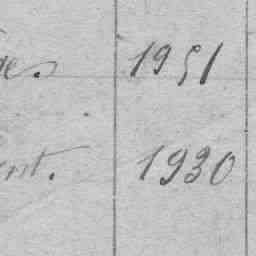 es 1951
nt. 1930